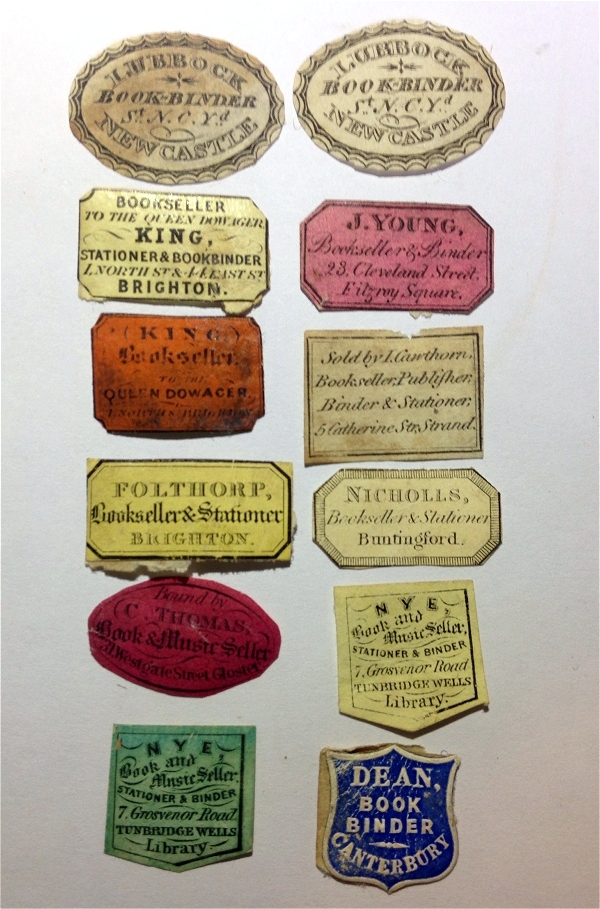 LUBBOCK
BOOK-BINDER
St. N. C. Yd
NEWCASTLE
LUBBOCK
BOOK-BINDER
St. N. C. Yd
NEWCASTLE
BOOKSELLER
TO THE QUEEN DOWAGER
KING,
STATIONER & BOOKBINDER
1, NORTH ST & 44, EAST ST
BRIGHTON.
J. YOUNG,
Bookseller & Binder
23, Cleveland Street,
Fitzroy Square.
(KING)
Bookseller,
TO THE
QUEEN DOWAGER,
Sold by I. Cawthorn,
Bookseller, Publisher,
Binder & Stationer,
5 Catherine Str. Strand.
FOLTHORP,
Bookseller & Stationer
BRIGHTON.
NICHOLLS,
Bookseller & Stationer
Buntingford.
Bound by
C. THOMAS,
Book & Music Seller
Westgate Street Gloster.
NYE,
Book and
Music Seller,
STATIONER & BINDER
7, Grosvenor Road
TUNBRIDGE WELLS
Library.
NYE,
Book and
Music Seller,
STATIONER & BINDER
7, Grosvenor Road
TUNBRIDGE WELLS
Library.
DEAN,
BOOK
BINDER
CANTERBURY